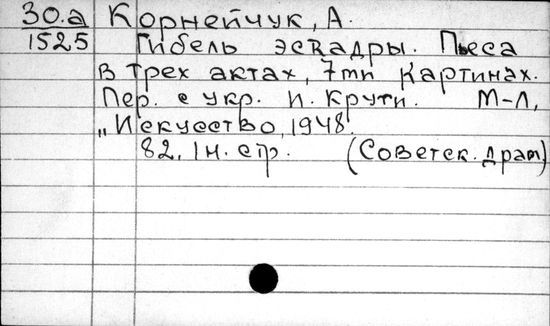 30.а Корнейчук, А.
1525 Гибель эскадры. Пьеса
в трех актах, 7ми картинах.
Пер. с укр. И. Крути. М-Л,
„Искусство, 1948.
82, 1 н. стр. (Советск. драм)